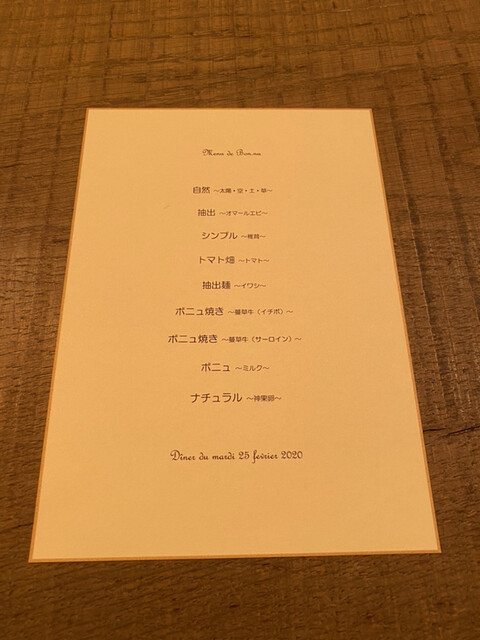 Menu de Bon.nu
自然 ～太陽・空・土・草～
抽出 ～オマールエビ～
シンプル ～椎茸～
トマト畑 ～トマト～
抽出麺 ～イワシ～
ボニュ焼き ～蔓草牛（イチボ）～
ボニュ焼き ～蔓草牛（サーロイン）～
ボニュ ～ミルク～
ナチュラル ～神果卵～
Dîner du mardi 25 fevrier 2020